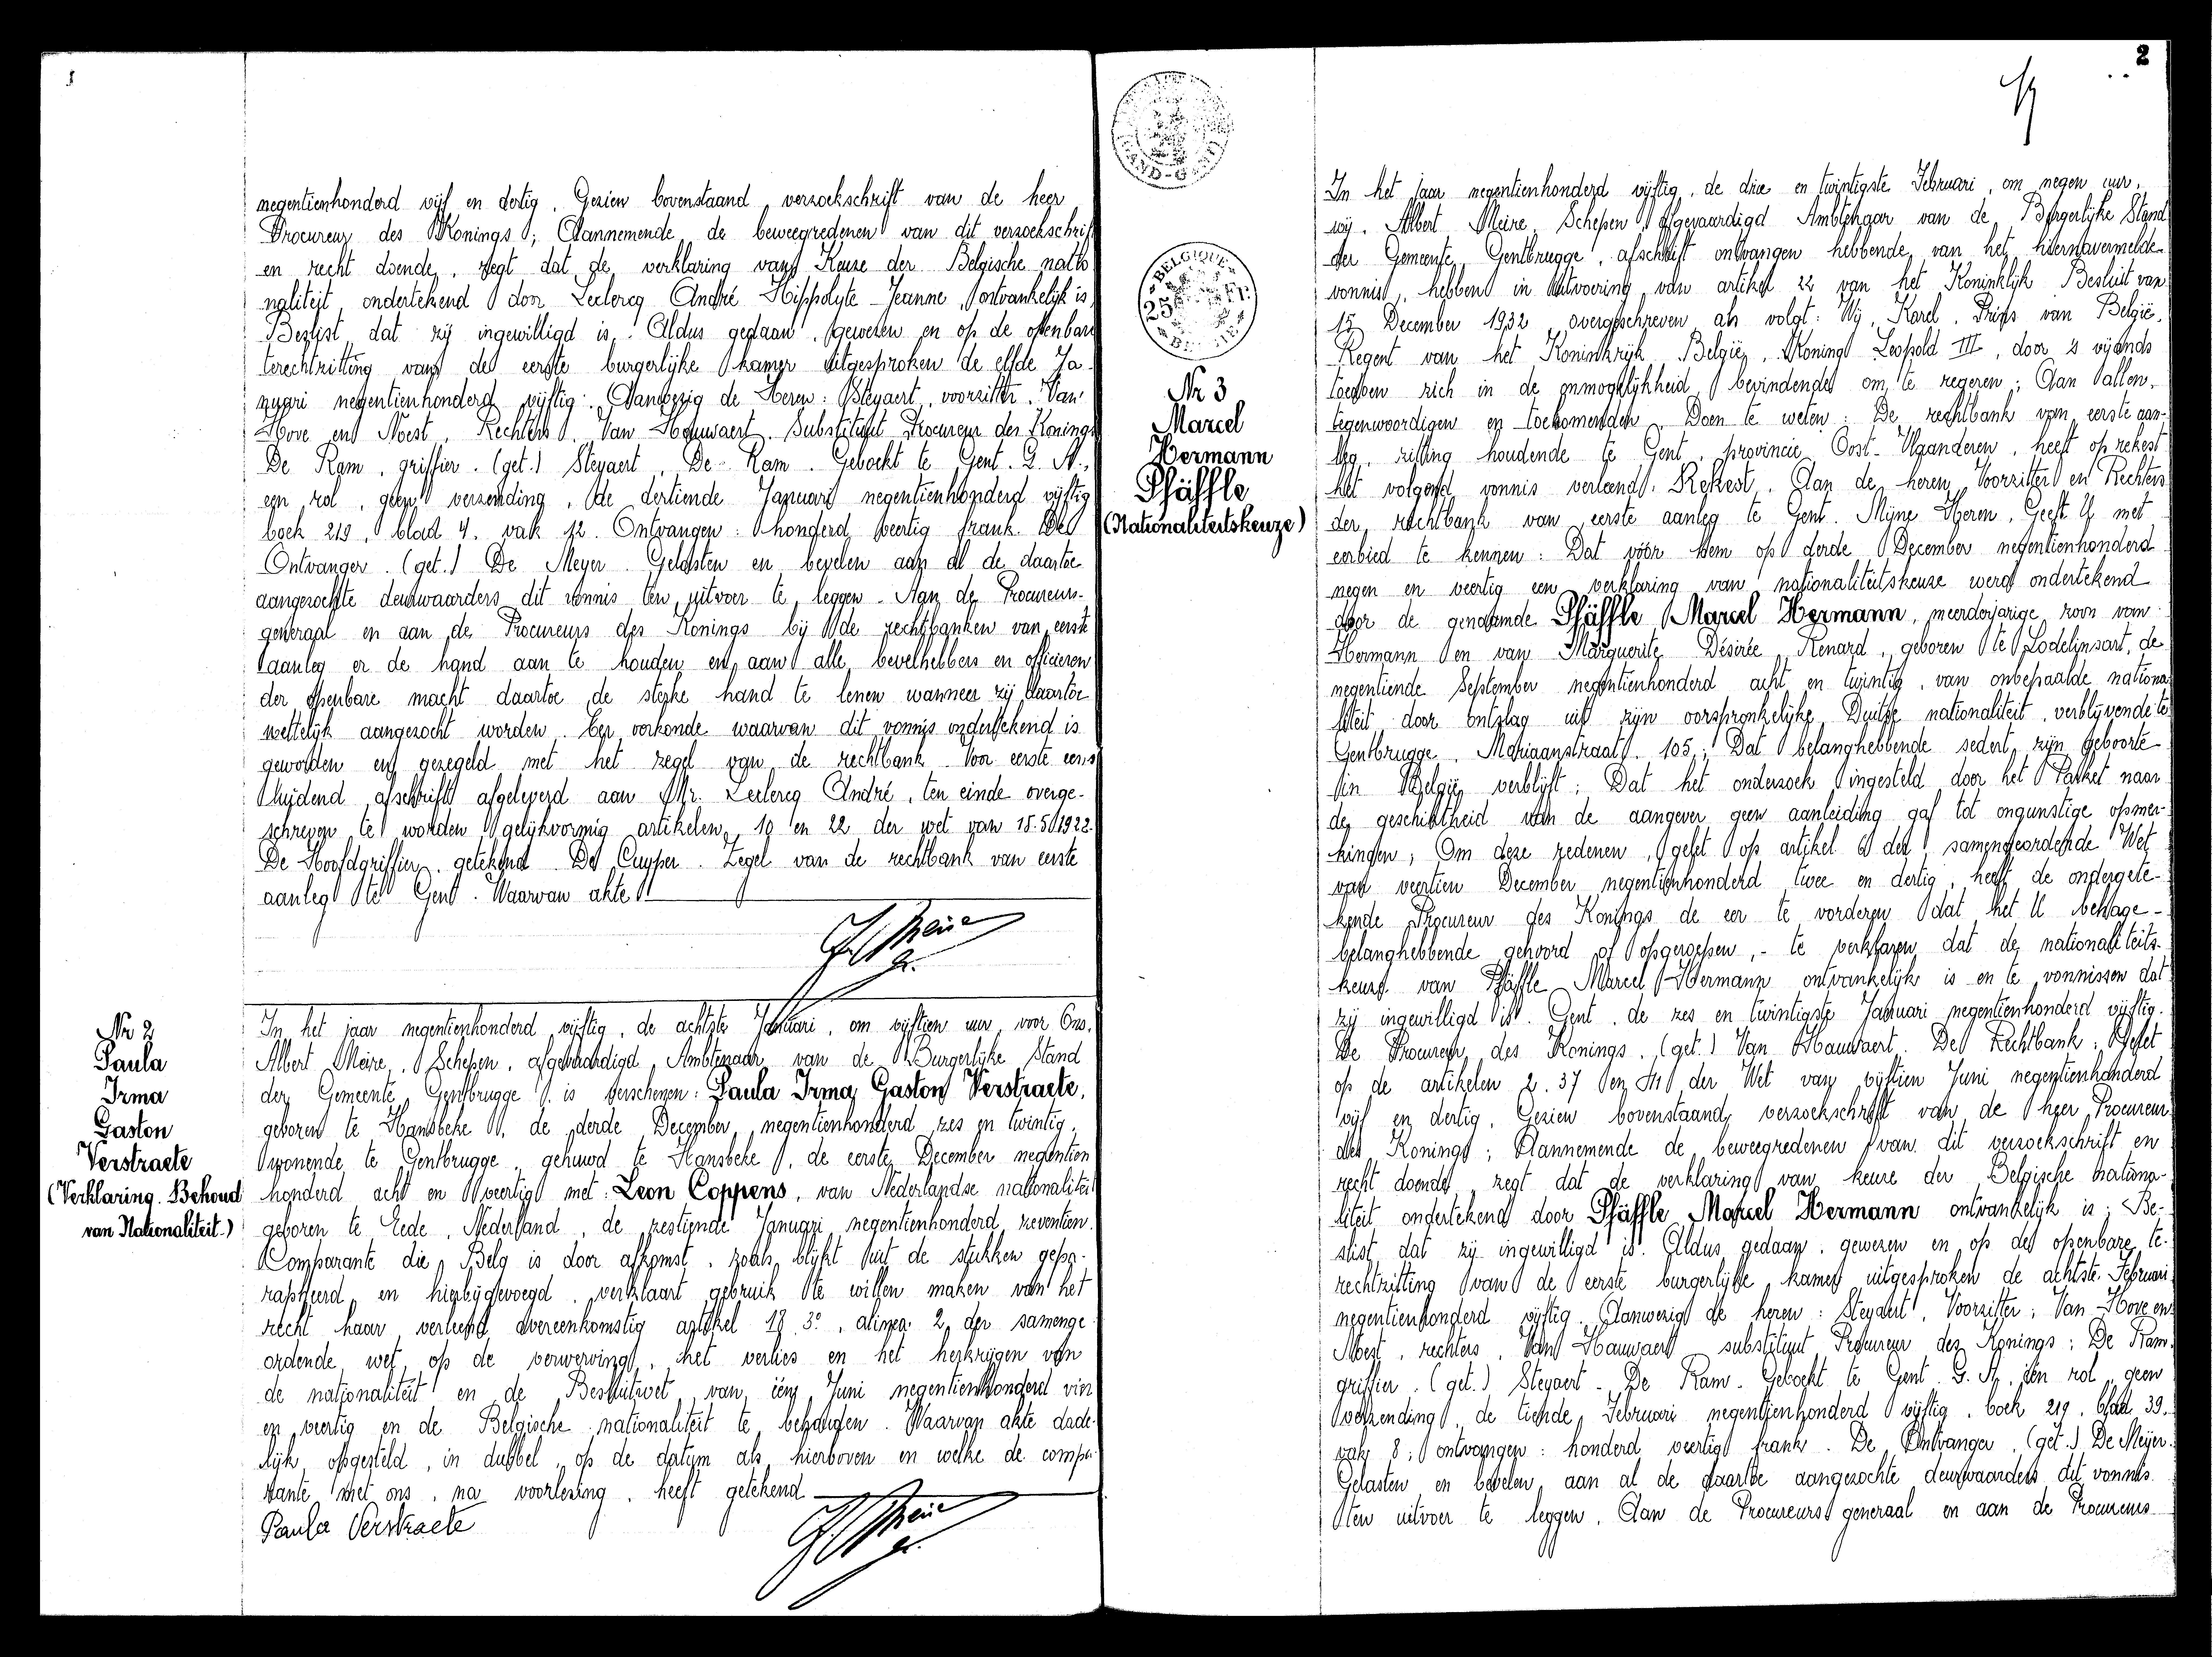 negentienhonderd vijf en dertig. Gezien bovenstaand verzoekschrift van de heer
Procureur des Konings; Aannemende de beweegredenen van dit verzoekschrift
en recht doende, zegt dat de verklaring van Keuze der Belgische natio-
naliteit ondertekend door Leclercq André Hippolyte Jeanne, ontvankelijk is,
Beslist dat zij ingewilligd is. Aldus gedaan, gewezen en op de openbare
terechtzitting van de eerste burgerlijke kamer uitgesproken de elfde Ja-
nuari negentienhonderd vijftig. Aanwezig de Heren: Steyaert, voorzitter, Van
Hove en Noest, Rechters, Van Hauwaert, Substituut Procureur des Konings
De Ram, griffier. (get.) Steyaert, De Ram. Geboekt te Gent. G. A.,
een rol, geen verzending, de dertiende Januari negentienhonderd vijftig
boek 219, blad 4, vak 12. Ontvangen: honderd veertig frank. De
Ontvanger. (get.) De Meyer. Gelasten en bevelen aan al de daartoe
aangezochte deurwaarders dit vonnis ten uitvoer te leggen. Aan de Procureurs-
generaal en aan de Procureurs des Konings bij de rechtbanken van eerste
aanleg er de hand aan te houden en aan alle bevelhebbers en officieren
der openbare macht daartoe de sterke hand te lenen wanneer zij daartoe
wettelijk aangezocht worden. Ter oorkonde waarvan dit vonnis ondertekend is
geworden en gezegeld met het zegel van de rechtbank. Voor eerste eens
luidend afschrift afgeleverd aan Mr. Leclercq André, ten einde overge-
schreven te worden gelijkvormig artikelen 10 en 22 der wet van 15.5.1922.
De Hoofdgriffier, getekend De Cuyper. Zegel van de rechtbank van eerste
aanleg te Gent. Waarvan akte.
Nr 2
Paula
Irma
Gaston
Verstraete
(Verklaring. Behoud
van Nationaliteit.)
In het jaar negentienhonderd vijftig, de achtste Januari, om vijftien uur, voor Ons,
Albert Meire, Schepen, afgevaardigd Ambtenaar van de Burgerlijke Stand
der Gemeente Gentbrugge, is verschenen: Paula Irma Gaston Verstraete,
geboren te Hansbeke, de derde December negentienhonderd zes en twintig,
wonende te Gentbrugge, gehuwd te Hansbeke, de eerste December negentien
honderd acht en veertig met: Leon Coppens, van Nederlandse nationaliteit
geboren te Eede, Nederland, de zestiende Januari negentienhonderd zeventien.
Comparante die Belg is door afkomst, zoals blijkt uit de stukken gepa-
rapheerd en hierbijgevoegd, verklaart gebruik te willen maken van het
recht haar verleend overeenkomstig artikel 18 3°, alinea 2 der samenge-
ordende wet op de verwerving, het verlies en het herkrijgen van
de nationaliteit en de Besluitwet van één Juni negentienhonderd vier
en veertig en de Belgische nationaliteit te behouden. Waarvan akte dade-
lijk opgesteld, in dubbel, op de datum als hierboven en welke de compa-
rante met ons, na voorlezing, heeft getekend
Paula Verstraete
2
GAND-GENT
BELGIQUE
25 Fr
Nr 3
Marcel
Hermann
Pfäffle
(Nationaliteitskeuze)
In het jaar negentienhonderd vijftig, de drie en twintigste Februari, om negen uur,
wij, Albert Meire, Schepen, afgevaardigd Ambtenaar van de Burgerlijke Stand
der Gemeente Gentbrugge, afschrift ontvangen hebbende van het hiernavermelde
vonnis, hebben in uitvoering van artikel 22 van het Koninklijk Besluit van
15 December 1932, overgeschreven als volgt: Wij, Karel, Prins van België,
Regent van het Koninkrijk België, Koning Leopold III, door 's vijands
toedoen zich in de onmogelijkheid bevindende om te regeren; Aan allen,
tegenwoordigen en toekomenden Doen te weten: De rechtbank van eerste aan-
leg, zitting houdende te Gent, provincie Oost-Vlaanderen, heeft op rekest
het volgend vonnis verleend: Rekest. Aan de heren Voorzitter en Rechters
der rechtbank van eerste aanleg te Gent. Mijne Heren, Geeft U met
eerbied te kennen: Dat vóór hem op derde December negentienhonderd
negen en veertig een verklaring van nationaliteitskeuze werd ondertekend
door de genaamde Pfäffle Marcel Hermann, meerderjarige zoon van
Hermann en van Marguerite Désirée Renard, geboren te Lodelinsart, de
negentiende September negentienhonderd acht en twintig, van onbepaalde nationa-
liteit door ontslag uit zijn oorspronkelijke Duitse nationaliteit, verblijvende te
Gentbrugge, Mariaanstraat, 105; Dat belanghebbende sedert zijn geboorte
in België verblijft; Dat het onderzoek ingesteld door het Parket naar
de geschiktheid van de aangever geen aanleiding gaf tot ongunstige opmer-
kingen; Om deze redenen, gelet op artikel 6 der samengeordende Wet
van veertien December negentienhonderd twee en dertig, heeft de ondergete-
kende Procureur des Konings de eer te vorderen dat het U behage -
belanghebbende gehoord of opgeroepen, - te verklaren dat de nationaliteits-
keuze van Pfäffle Marcel Hermann ontvankelijk is en te vonnissen dat
zij ingewilligd is. Gent, de zes en twintigste Januari negentienhonderd vijftig.
De Procureur des Konings. (get.) Van Hauwaert. De Rechtbank: Gelet
op de artikelen 2. 37 en 41 der Wet van vijftien Juni negentienhonderd
vijf en dertig, Gezien bovenstaand verzoekschrift van de heer Procureur
des Konings; Aannemende de beweegredenen van dit verzoekschrift en
recht doende, zegt dat de verklaring van keuze der Belgische nationa-
liteit ondertekend door Pfäffle Marcel Hermann ontvankelijk is; Be-
slist dat zij ingewilligd is. Aldus gedaan, gewezen en op de openbare te-
rechtzitting van de eerste burgerlijke kamer uitgesproken de achtste Februari
negentienhonderd vijftig. Aanwezig de heren: Steyaert, Voorzitter; Van Hove en
Noest, rechters, Van Hauwaert substituut Procureur des Konings; De Ram,
griffier. (get.) Steyaert - De Ram. Geboekt te Gent G. A. één rol, geen
verzending, de tiende Februari negentienhonderd vijftig, boek 219, blad 39,
vak 8; ontvangen: honderd veertig frank. De Ontvanger, (get.) De Meijer.
Gelasten en bevelen aan al de daartoe aangezochte deurwaarders dit vonnis
ten uitvoer te leggen. Aan de Procureurs generaal en aan de Procureurs